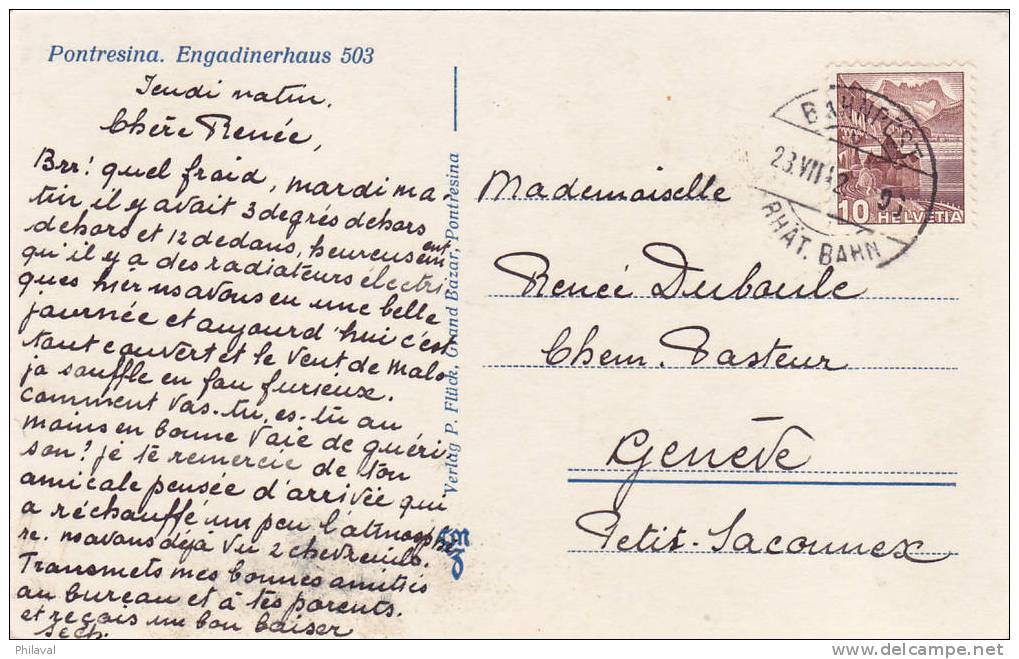 Pontresina. Engadinerhaus 503
Jeudi matin.
Chère Renée,
Brr! quel froid, mardi ma-
tin il y avait 3 degrés dehors
dehors et 12 dedans, heureusement
qu'il y a des radiateurs électri
ques hier ns avons eu une belle
journée et aujourd'hui c'est
tout couvert et le vent de Malo-
ja souffle en fou furieux.
Comment vas-tu, es-tu au
moins en bonne voie de guéri-
son? je te remercie de ton
amicale pensée d'arrivée qui
a réchauffé un peu l'atmosphè
re. ns avons déjà vu 2 chevreuils.
Transmets mes bonnes amitiés
au bureau et à tes parents.
et reçois un bon baiser
Verlag P. Flück, Grand Bazar, Pontresina
BAHNPOST
23.VII.42
RHÄT. BAHN
10 HELVETIA
Mademoiselle
Renée Duboule
Chem. Pasteur
Genève
Petit-Saconnex
Philaval
delcampe.net